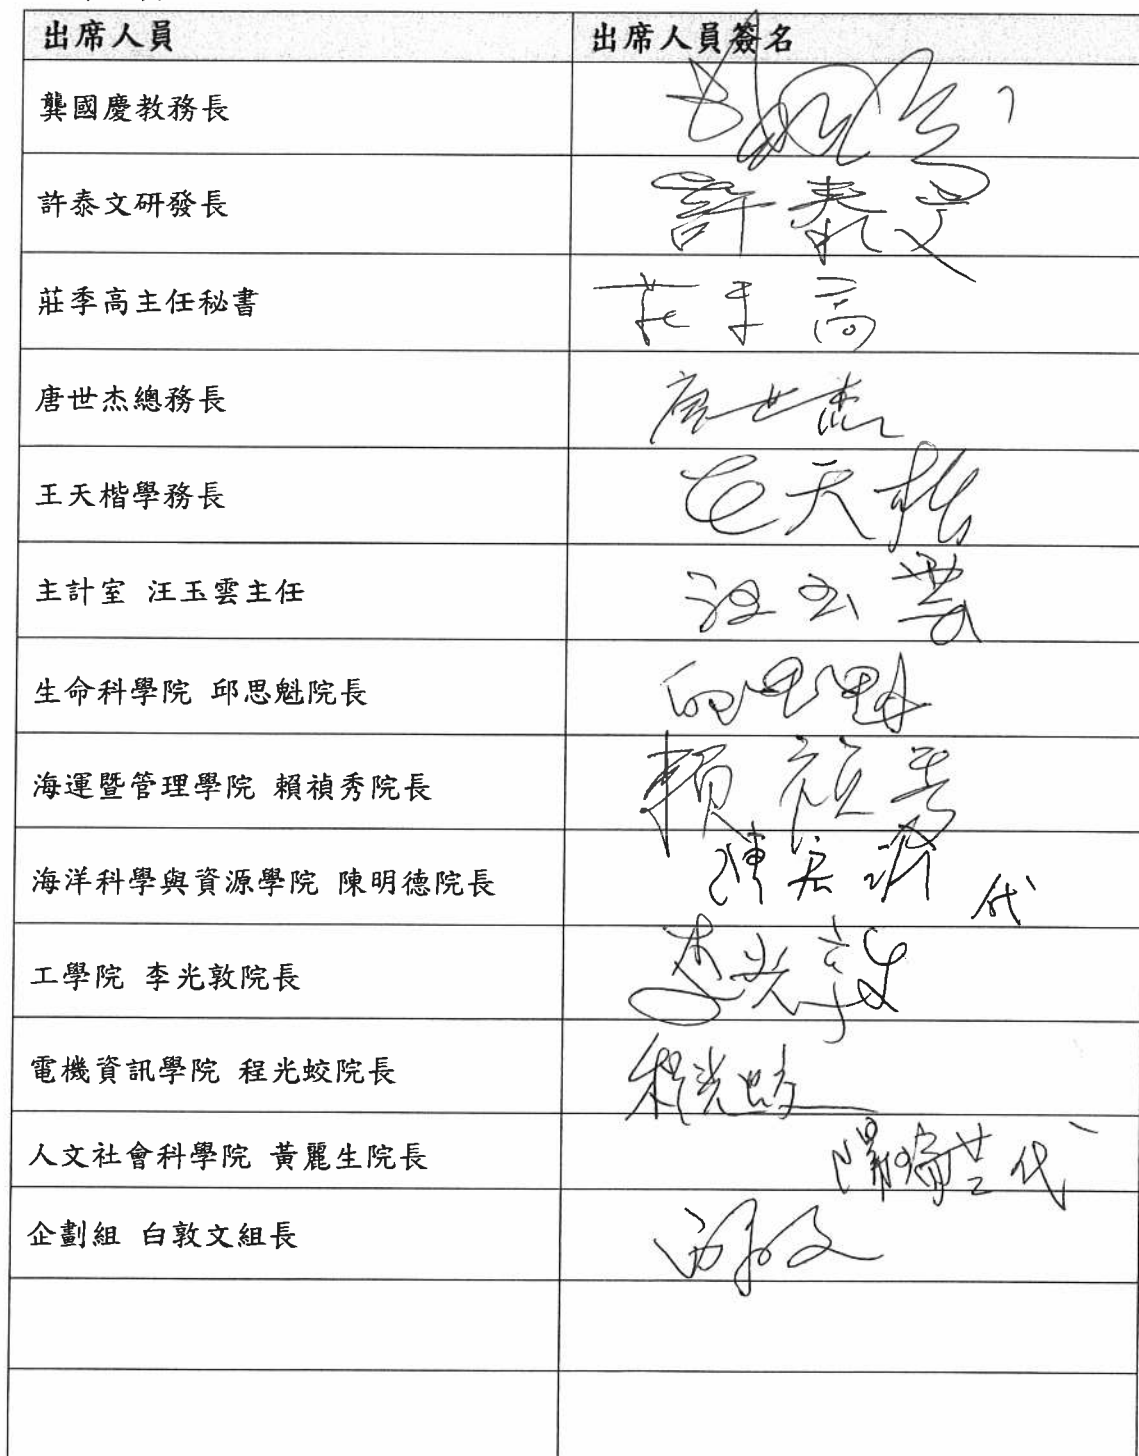 出席人員 出席人員簽名
龔國慶教務長
許泰文研發長 許泰文
莊季高主任秘書 莊季高
唐世杰總務長 唐世杰
王天楷學務長 王天楷
主計室 汪玉雲主任 汪玉雲
生命科學院 邱思魁院長 邱思魁
海運暨管理學院 賴禎秀院長 賴禎秀
海洋科學與資源學院 陳明德院長 代
工學院 李光敦院長 李光敦
電機資訊學院 程光蛟院長 程光蛟
人文社會科學院 黃麗生院長 代
企劃組 白敦文組長